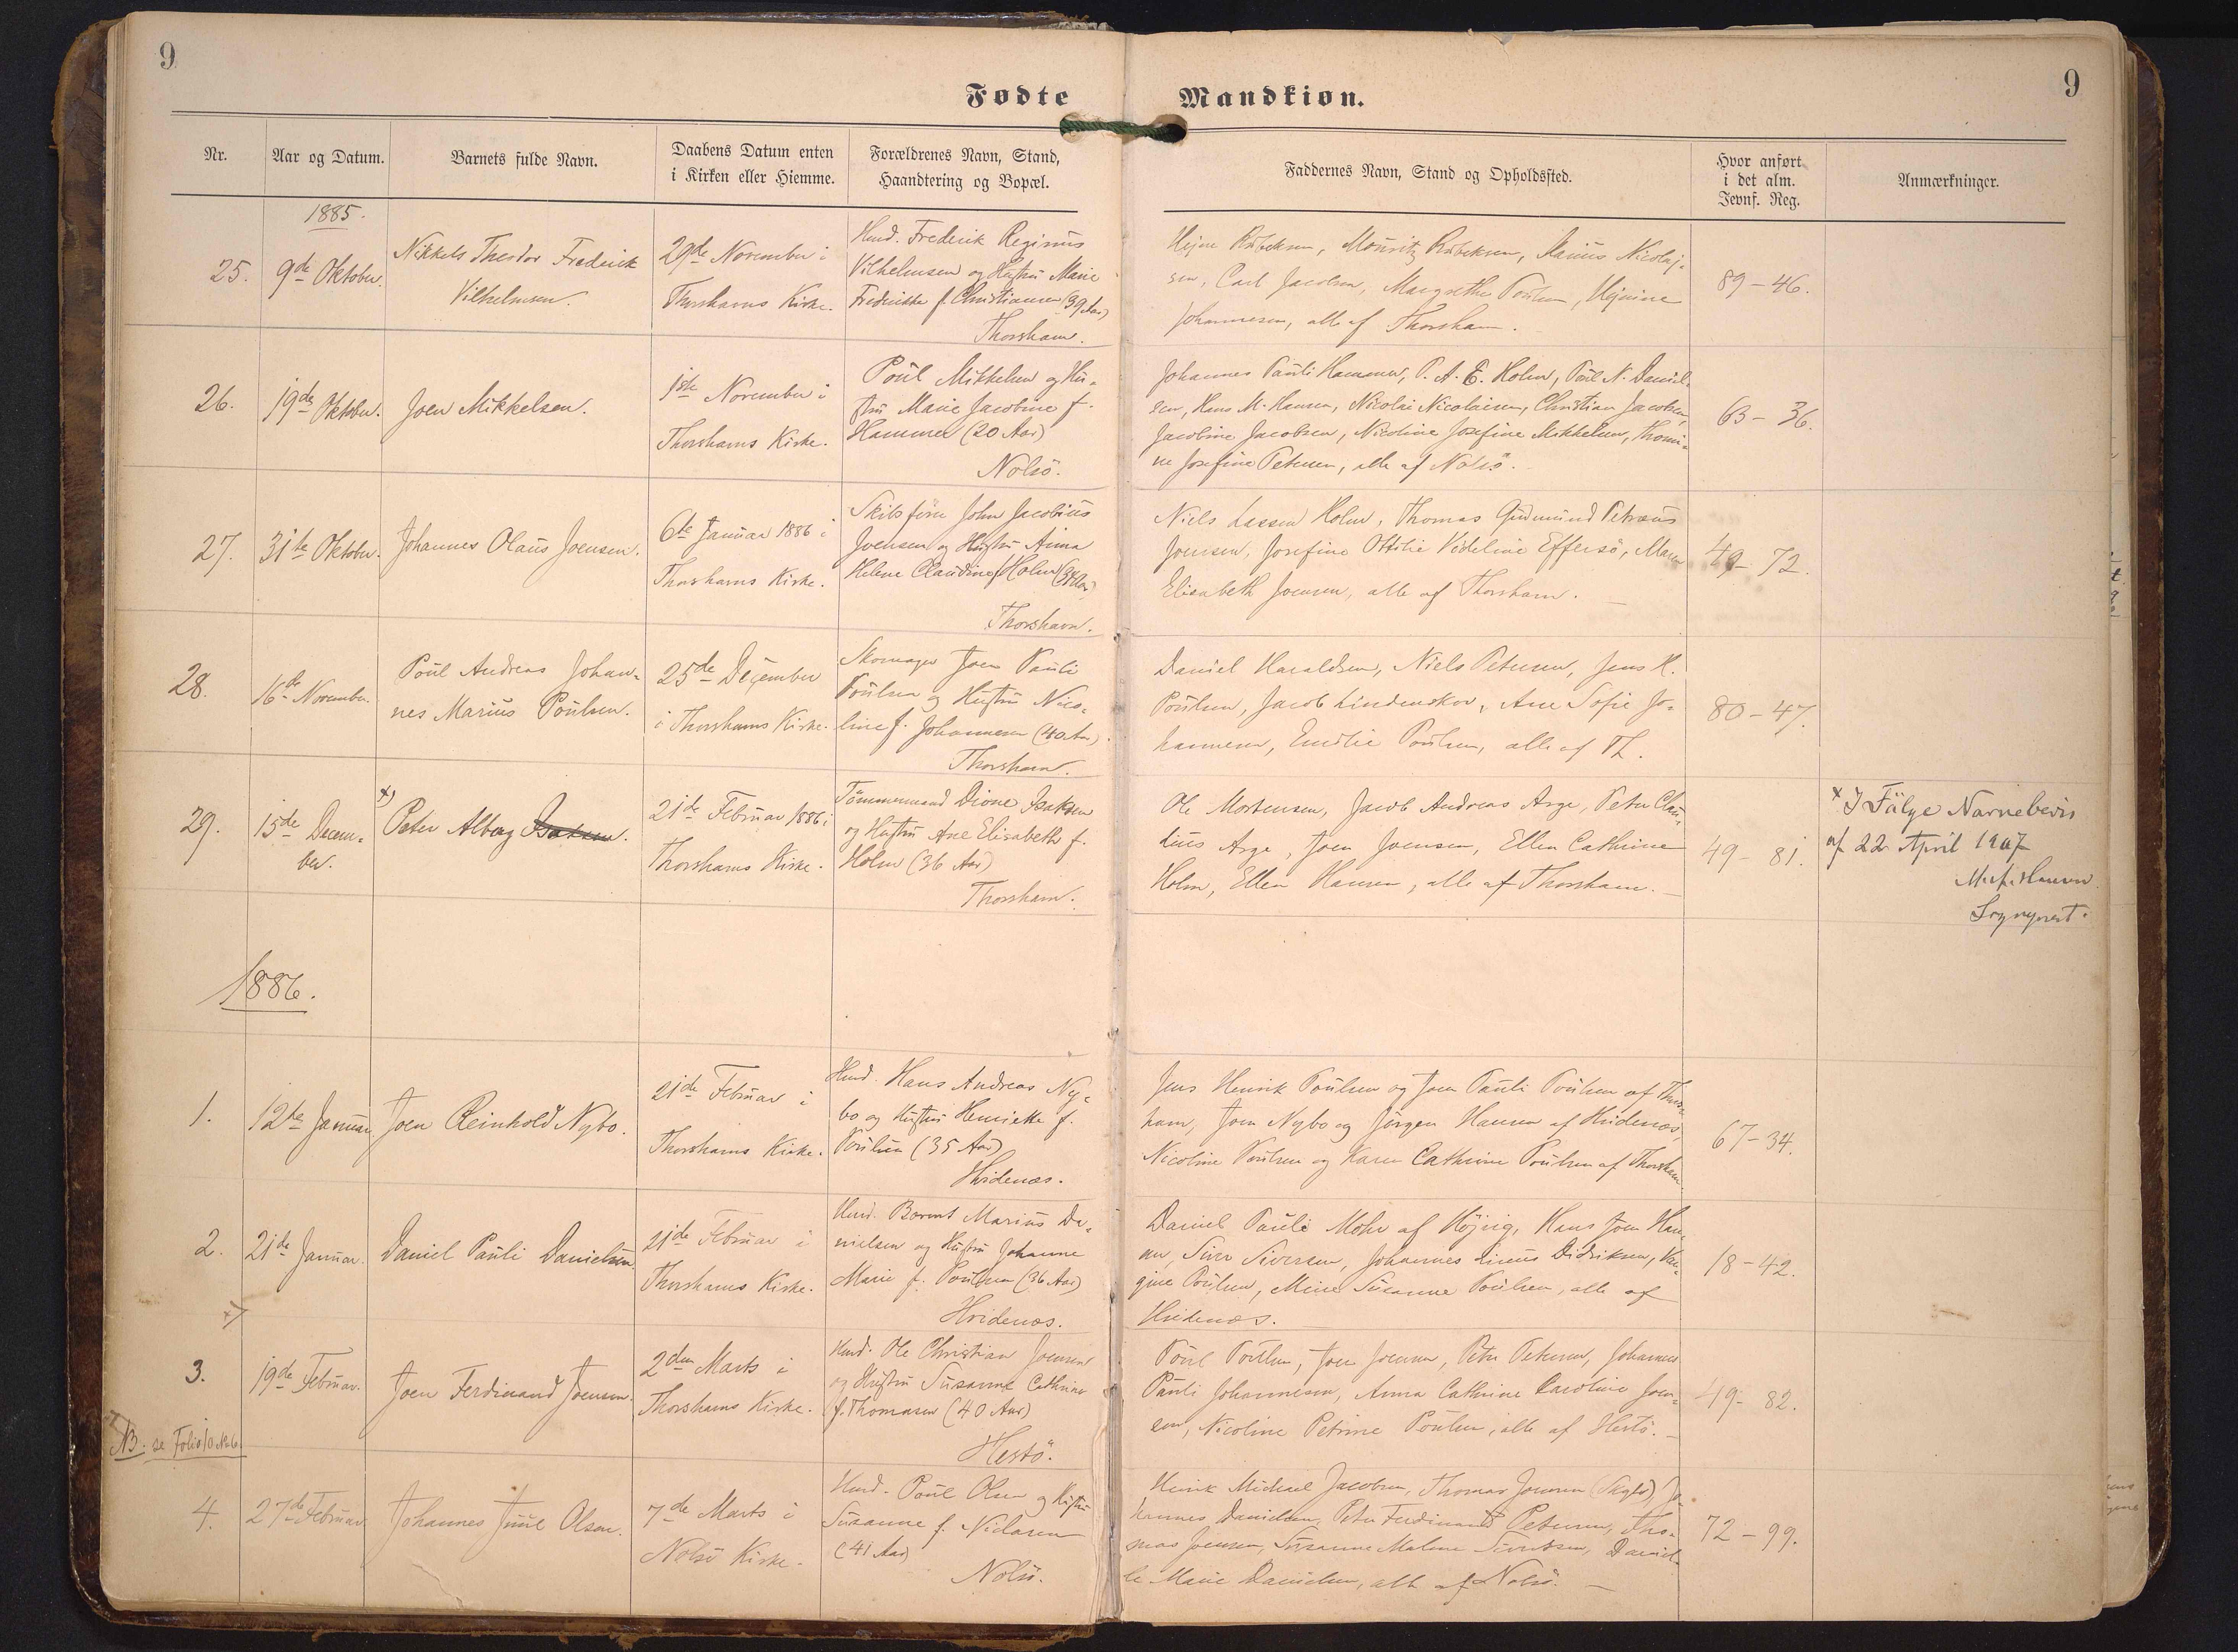 9
9
Fødte Mandkiøn.
Nr.
Aar og Datum.
Barnets fulde Navn.
Daabens Datum enten
i Kirken eller Hiemme.
Forældrenes Navn, Stand,
Haandtering og Bopæl.
Faddernes Navn, Stand og Opholdssted.
Hvor anført
i det alm.
Jevnf. Reg.
Anmærkninger.
1885.
25.
9de Oktober.
Nikkels Theodor Frederik
Vilhelmsen.
29de November i
Thorshavns Kirke.
Hmd. Frederik Reginus
Vilhelmsen og Hustru Marie
Frederikke f. Christiansen (39 Aar)
Thorshavn.
Mouritz Rubeksen, Marius Nicolaj-
sen, Carl Jacobsen, Margrethe Poulsen,
Johannesen, alle af Thorshavn.
89-46.
26.
19de Oktober.
Joen Mikkelsen.
1ste November i
Thorshavns Kirke.
Poul Mikkelsen og Hu-
stru Marie Jacobine f.
Hammer (20 Aar)
Nolsö.
Johannes Pauli Hammer, P. A. E. Holm, Poul N. Daniel-
sen, Hans M. Hansen, Nicolai Nicolaisen, Christian Jacobsen,
Jacobine Jacobsen, Nicoline Josefine Mikkelsen, Thomi-
ne Josefine Petersen, alle af Nolsö.
63-36.
27.
31te Oktober.
Johannes Olaus Joensen.
6te Januar 1886 i
Thorshavns Kirke.
Skibsförer John Jacobius
Joensen og Hustru Anna
Helene Claudine f. Holm (34 Aar)
Thorshavn.
Niels Lassen Holm, Thomas Gudmund Petræus
Joensen, Josefine Ottilie Videline Effersö, Maren
Elisabeth Joensen, alle af Thorshavn.
49-72.
28.
16de November.
Poul Andreas Johan-
nes Marius Poulsen.
25de December
i Thorshavns Kirke.
Skomager Joen Pauli
Poulsen og Hustru Nico-
line f. Johannesen (40 Aar).
Thorshavn.
Daniel Haraldsen, Niels Petersen, Jens H.
Poulsen, Jacob Lindenskov, Ane Sofie Jo-
hannesen, Emilie Poulsen, alle af Th.
80-47.
29.
15de Decem-
ber.
x) Peter Alberg Isaksen.
21de Februar 1886 i
Thorshavns Kirke.
Tömmermand Dione Isaksen
og Hustru Ane Elisabeth f.
Holm (36 Aar)
Thorshavn.
Ole Mortensen, Jacob Andreas Arge, Peter Clau-
dius Arge, Joen Joensen, Ellen Cathrine
Holm, Ellen Hansen, alle af Thorshavn.
49-81.
x I Fölge Navnebevis
af 22 April 1907
Sognepræst.
1886.
1.
12te Januar
Joen Reinhold Nybo.
21de Februar i
Thorshavns Kirke.
Hmd. Hans Andreas Ny-
bo og Hustru Henriette f.
Poulsen (35 Aar)
Hvidenæs.
Jens Henrik Poulsen og Joen Pauli Poulsen af Thors-
havn, Joen Nybo og Jörgen Hansen af Hvidenæs,
Nicoline Poulsen og Karen Cathrine Poulsen af Thorshavn.
67-34.
2.
21de Januar.
Daniel Pauli Danielsen.
21de Februar i
Thorshavns Kirke.
Hmd. Marius Da-
nielsen og Hustru Johanne
Marie f. Poulsen (36 Aar)
Hvidenæs.
Daniel Pauli Mohr af Höjvig, Hans Joen Han-
sen, Siversen, Johannes Linus Didriksen,
Poulsen, Mine Susanne Poulsen, alle af
Hvidenæs.
18-42.
x)
3.
19de Februar.
Joen Ferdinand Joensen.
2den Marts i
Thorshavns Kirke.
Hmd. Ole Christian Joensen
og Hustru Susanne Cathrine
f. Thomasen (40 Aar)
Hestö.
Poul Poulsen, Joen Joensen, Peter Petersen, Johannes
Pauli Johannesen, Anna Cathrine Caroline Joen-
sen, Nicoline Petrine Poulsen, alle af Hestö.
49-82.
NB. se Folio 10 No 6.
4.
27de Februar
Johannes Juul Olsen.
7de Marts i
Nolsö Kirke.
Hmd. Poul Olsen og Hustru
Susanne f. Niclasen
(41 Aar)
Nolsö.
Henrik Michael Jacobsen, Thomas Joensen Jo-
hannes Danielsen, Peter Ferdinand Petersen, Tho-
mas Joensen, Susanne Malene Sivertsen, Daniel-
le Marie Danielsen, alle af Nolsö.
72-99.